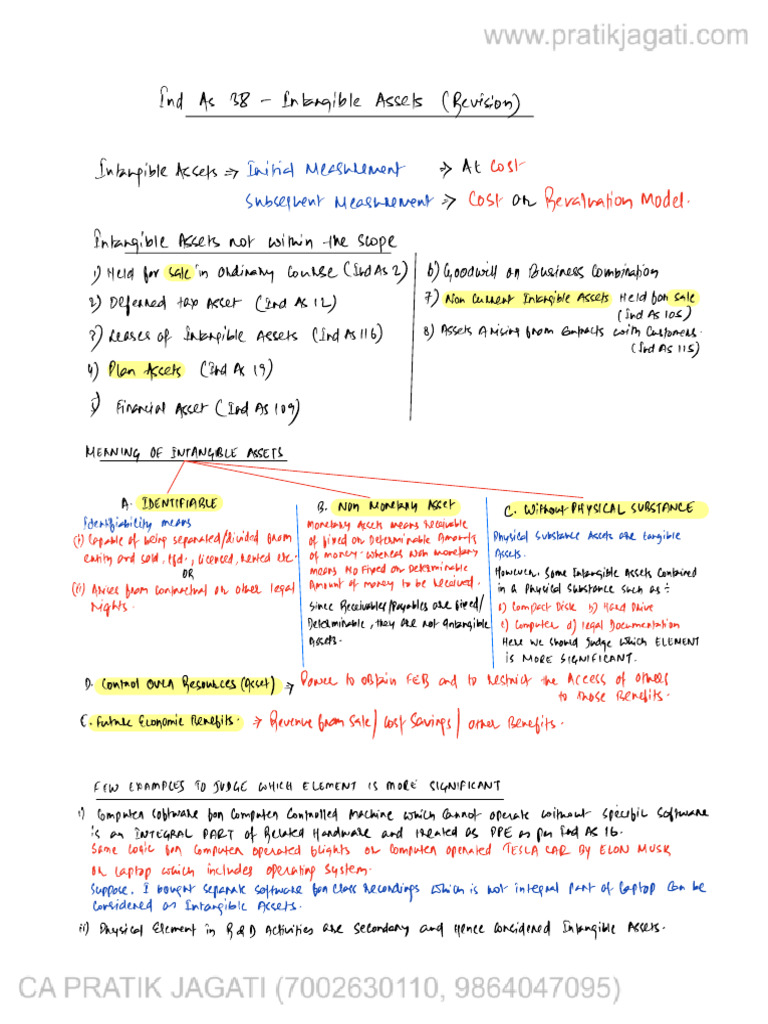 www.pratikjagati.com
Ind As 38 - Intangible Assets (Revision)
Intangible Assets => Initial Measurement => At Cost
Subsequent Measurement => Cost or Revaluation Model.
Intangible Assets not within the scope
1) Held for sale in ordinary course (Ind As 2)
2) Deferred tax Asset (Ind As 12)
3) Leases of Intangible Assets (Ind As 116)
4) Plan Assets (Ind As 19)
5) Financial Asset (Ind As 109)
6) Goodwill on Business Combination
7) Non Current Intangible Assets Held for sale
(Ind As 105)
8) Assets Arising from Contracts with Customers.
(Ind As 115)
MEANING OF INTANGIBLE ASSETS
A. IDENTIFIABLE
Identifiability means
(i) Capable of being separated/divided from
entity and sold, tfd., licenced, rented etc.
OR
(ii) Arises from contractual or other legal
rights.
B. Non Monetary Asset
Monetary Assets means Receivable
of fixed or Determinable Amounts
of money. whereas Non monetary
means No Fixed or Determinable
Amount of money to be received.
Since Receivables/Payables are fixed/
Determinable, they are not Intangible
Assets.
C. Without PHYSICAL SUBSTANCE
Physical Substance Assets are tangible
Assets.
However. Some Intangible Assets Contained
in a Physical Substance such as :-
a) Compact Disk b) Hard Drive
c) Computer d) legal Documentation
Here We Should Judge which ELEMENT
is MORE SIGNIFICANT.
D. Control Over Resources (Asset) => Power to obtain FEB and to restrict the Access of others
to those Benefits.
E. Future Economic Benefits. => Revenue from Sale/ Cost Savings/ other Benefits.
FEW EXAMPLES TO JUDGE WHICH ELEMENT IS MORE SIGNIFICANT
i) Computer Software for Computer Controlled Machine which Cannot operate without Specific Software
is an INTEGRAL PART of Related Hardware and treated as PPE as per Ind AS 16.
Same Logic for Computer operated flights or Computer operated TESLA CAR BY ELON MUSK
or Laptop which includes operating System.
Suppose, I bought Separate Software for Class Recordings which is not integral part of Laptop Can be
Considered as Intangible Assets.
ii) Physical Element in R&D Activities are Secondary and Hence Considered Intangible Assets.
CA PRATIK JAGATI (7002630110, 9864047095)